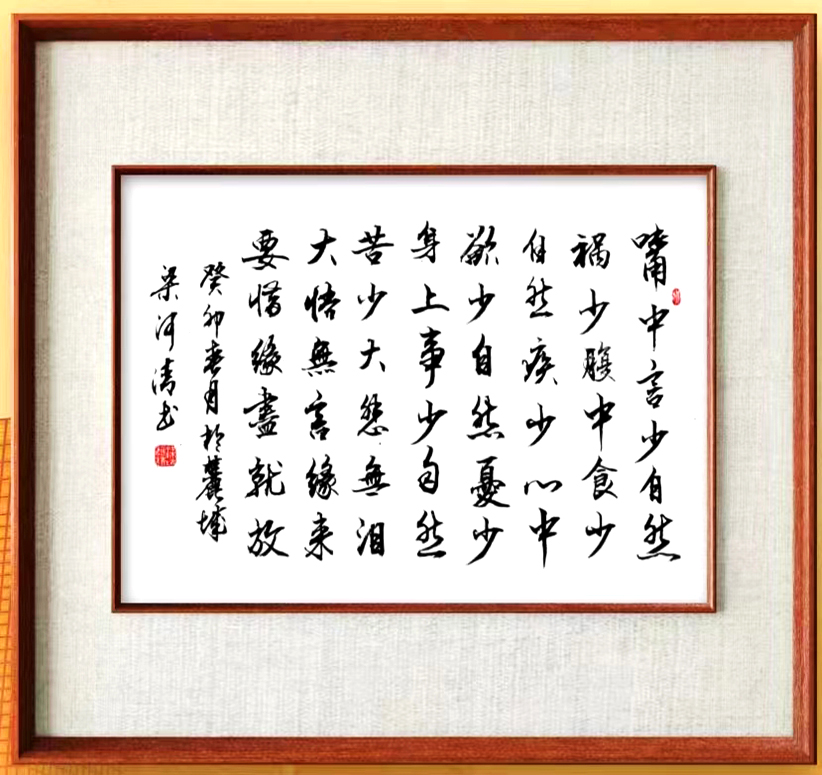 嘴中言少自然
祸少腹中食少
自然疾少心中
欲少自然憂少
身上事少自然
苦少大悲無泪
大悟無言缘来
要惜缘盡就放
癸卯春月於麓城
梁河清书